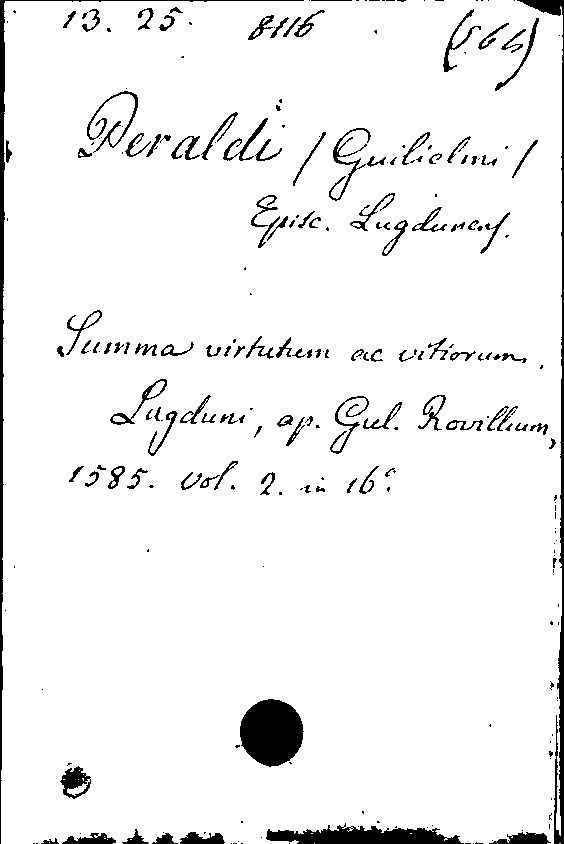 13. 25. 8116
Peraldi / Guilielmi /
Episc. Lugdunens.
Summa virtutum ac vitiorum.
Lugduni, ap. Gul. Rovillium,
1585. Vol. 2. in 16º.